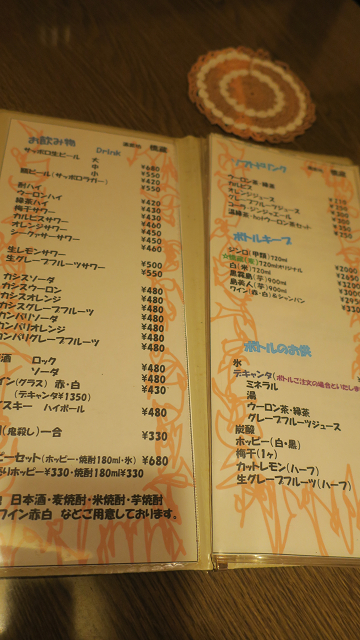 お飲み物 Drink
サッポロ生ビール 大 ¥680
中 ¥550
小 ¥420
瓶ビール(サッポロラガー) ¥550
酎ハイ ¥420
ウーロンハイ ¥430
緑茶ハイ
梅干サワー
カルピスサワー
オレンジサワー ¥450
シークァーサーサワー ¥450
¥460
生レモンサワー ¥500
生グレープフルーツサワー ¥550
カシスソーダ ¥480
カシスウーロン ¥480
カシスオレンジ ¥480
カシスグレープフルーツ ¥480
カンパリソーダ ¥480
カンパリオレンジ ¥480
カンパリグレープフルーツ ¥480
酒 ロック ¥480
ソーダ ¥480
イン(グラス) 赤・白 ¥430
(デキャンタ¥1350)
スキー ハイボール ¥480
(鬼殺し)一合 ¥330
ピーセット(ホッピー・焼酎180ml・氷) ¥680
ホッピー¥330・焼酎180ml¥330
日本酒・麦焼酎・米焼酎・芋焼酎
ワイン赤白 などご用意しております。
ソフトドリンク
ウーロン茶・緑茶
カルピス
オレンジジュース
グレープフルーツジュース
コーラ・ジンジャエール
ボトルキープ
ジンロ(甲類)720ml
(麦)720mlオリジナル
(米)720ml
黒霧島(芋)900ml
島美人(芋)900ml
ワイン(赤・白)&シャンパン
ボトルのお供
氷
デキャンタ(ボトルご注文の場合といたしま
ミネラル
湯
ウーロン茶・緑茶
グレープフルーツジュース
炭酸
ホッピー(白・黒)
梅干(1ヶ)
カットレモン(ハーフ)
生グレープフルーツ(ハーフ)